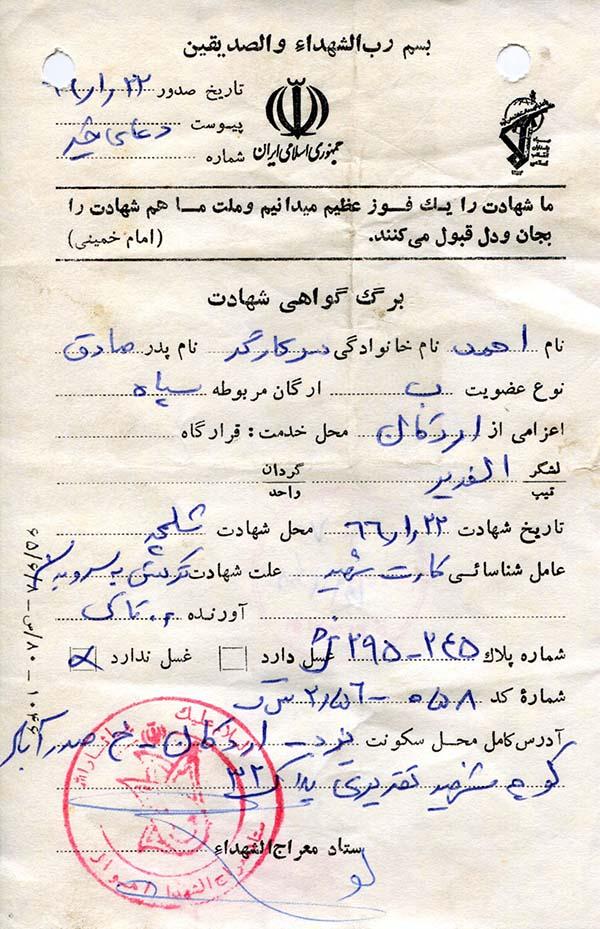 بسم رب الشهداء والصدیقین
تاریخ صدور ۲۲ر۱ر۶۶
پیوست دعای خیر
شماره
جمهوری اسلامی ایران
ما شهادت را یك فوز عظیم میدانیم وملت ما هم شهادت را
بجان ودل قبول می‌کنند. (امام خمینی)
برگ گواهی شهادت
نام احمد نام خانوادگی سرکارگر نام پدر صادق
نوع عضویت ب ارگان مربوطه سپاه
اعزامی از اردکان محل خدمت: قرارگاه
لشگر تیپ الغدیر گردان واحد
تاریخ شهادت ۲۲ر۱ر۶۶ محل شهادت شلمچه
عامل شناسائی کارت شهید علت شهادت ترکش به سر و بدن
آورنده
شماره پلاك ۲۴۵-۲۹۵ غسل دارد غسل ندارد
شمارهٔ کد
آدرس کامل محل سکونت یزد - اردکان - خ صدرآباد
کوچه شهید تقدیری پلاک ۳۲
ستاد معراج الشهداء